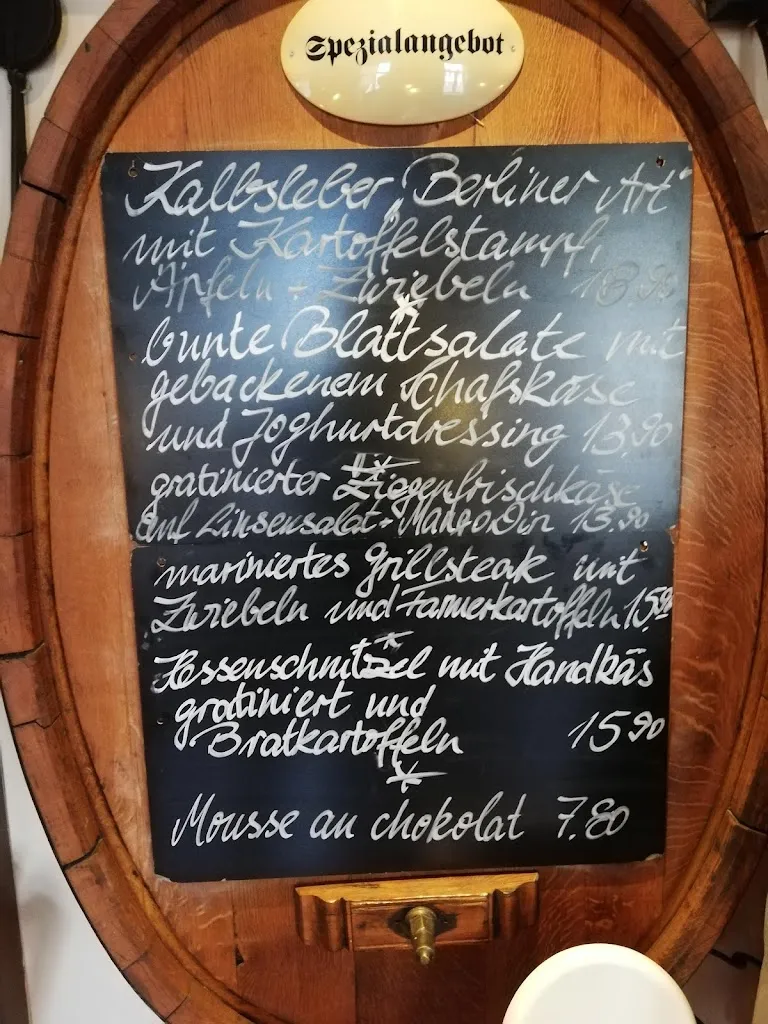 Spezialangebot
Kalbsleber „Berliner Art"
mit Kartoffelstampf,
Äpfeln + Zwiebeln 18.90
bunte Blattsalate mit
gebackenem Schafskäse
und Joghurtdressing 13,90
gratinierter Ziegenfrischkäse
auf Linsensalat + Mango Dip 13.90
mariniertes Grillsteak mit
Zwiebeln und Farmerkartoffeln 15,90
Hessenschnitzel mit Handkäs
gratiniert und
Bratkartoffeln 15 90
Mousse au chokolat 7.80